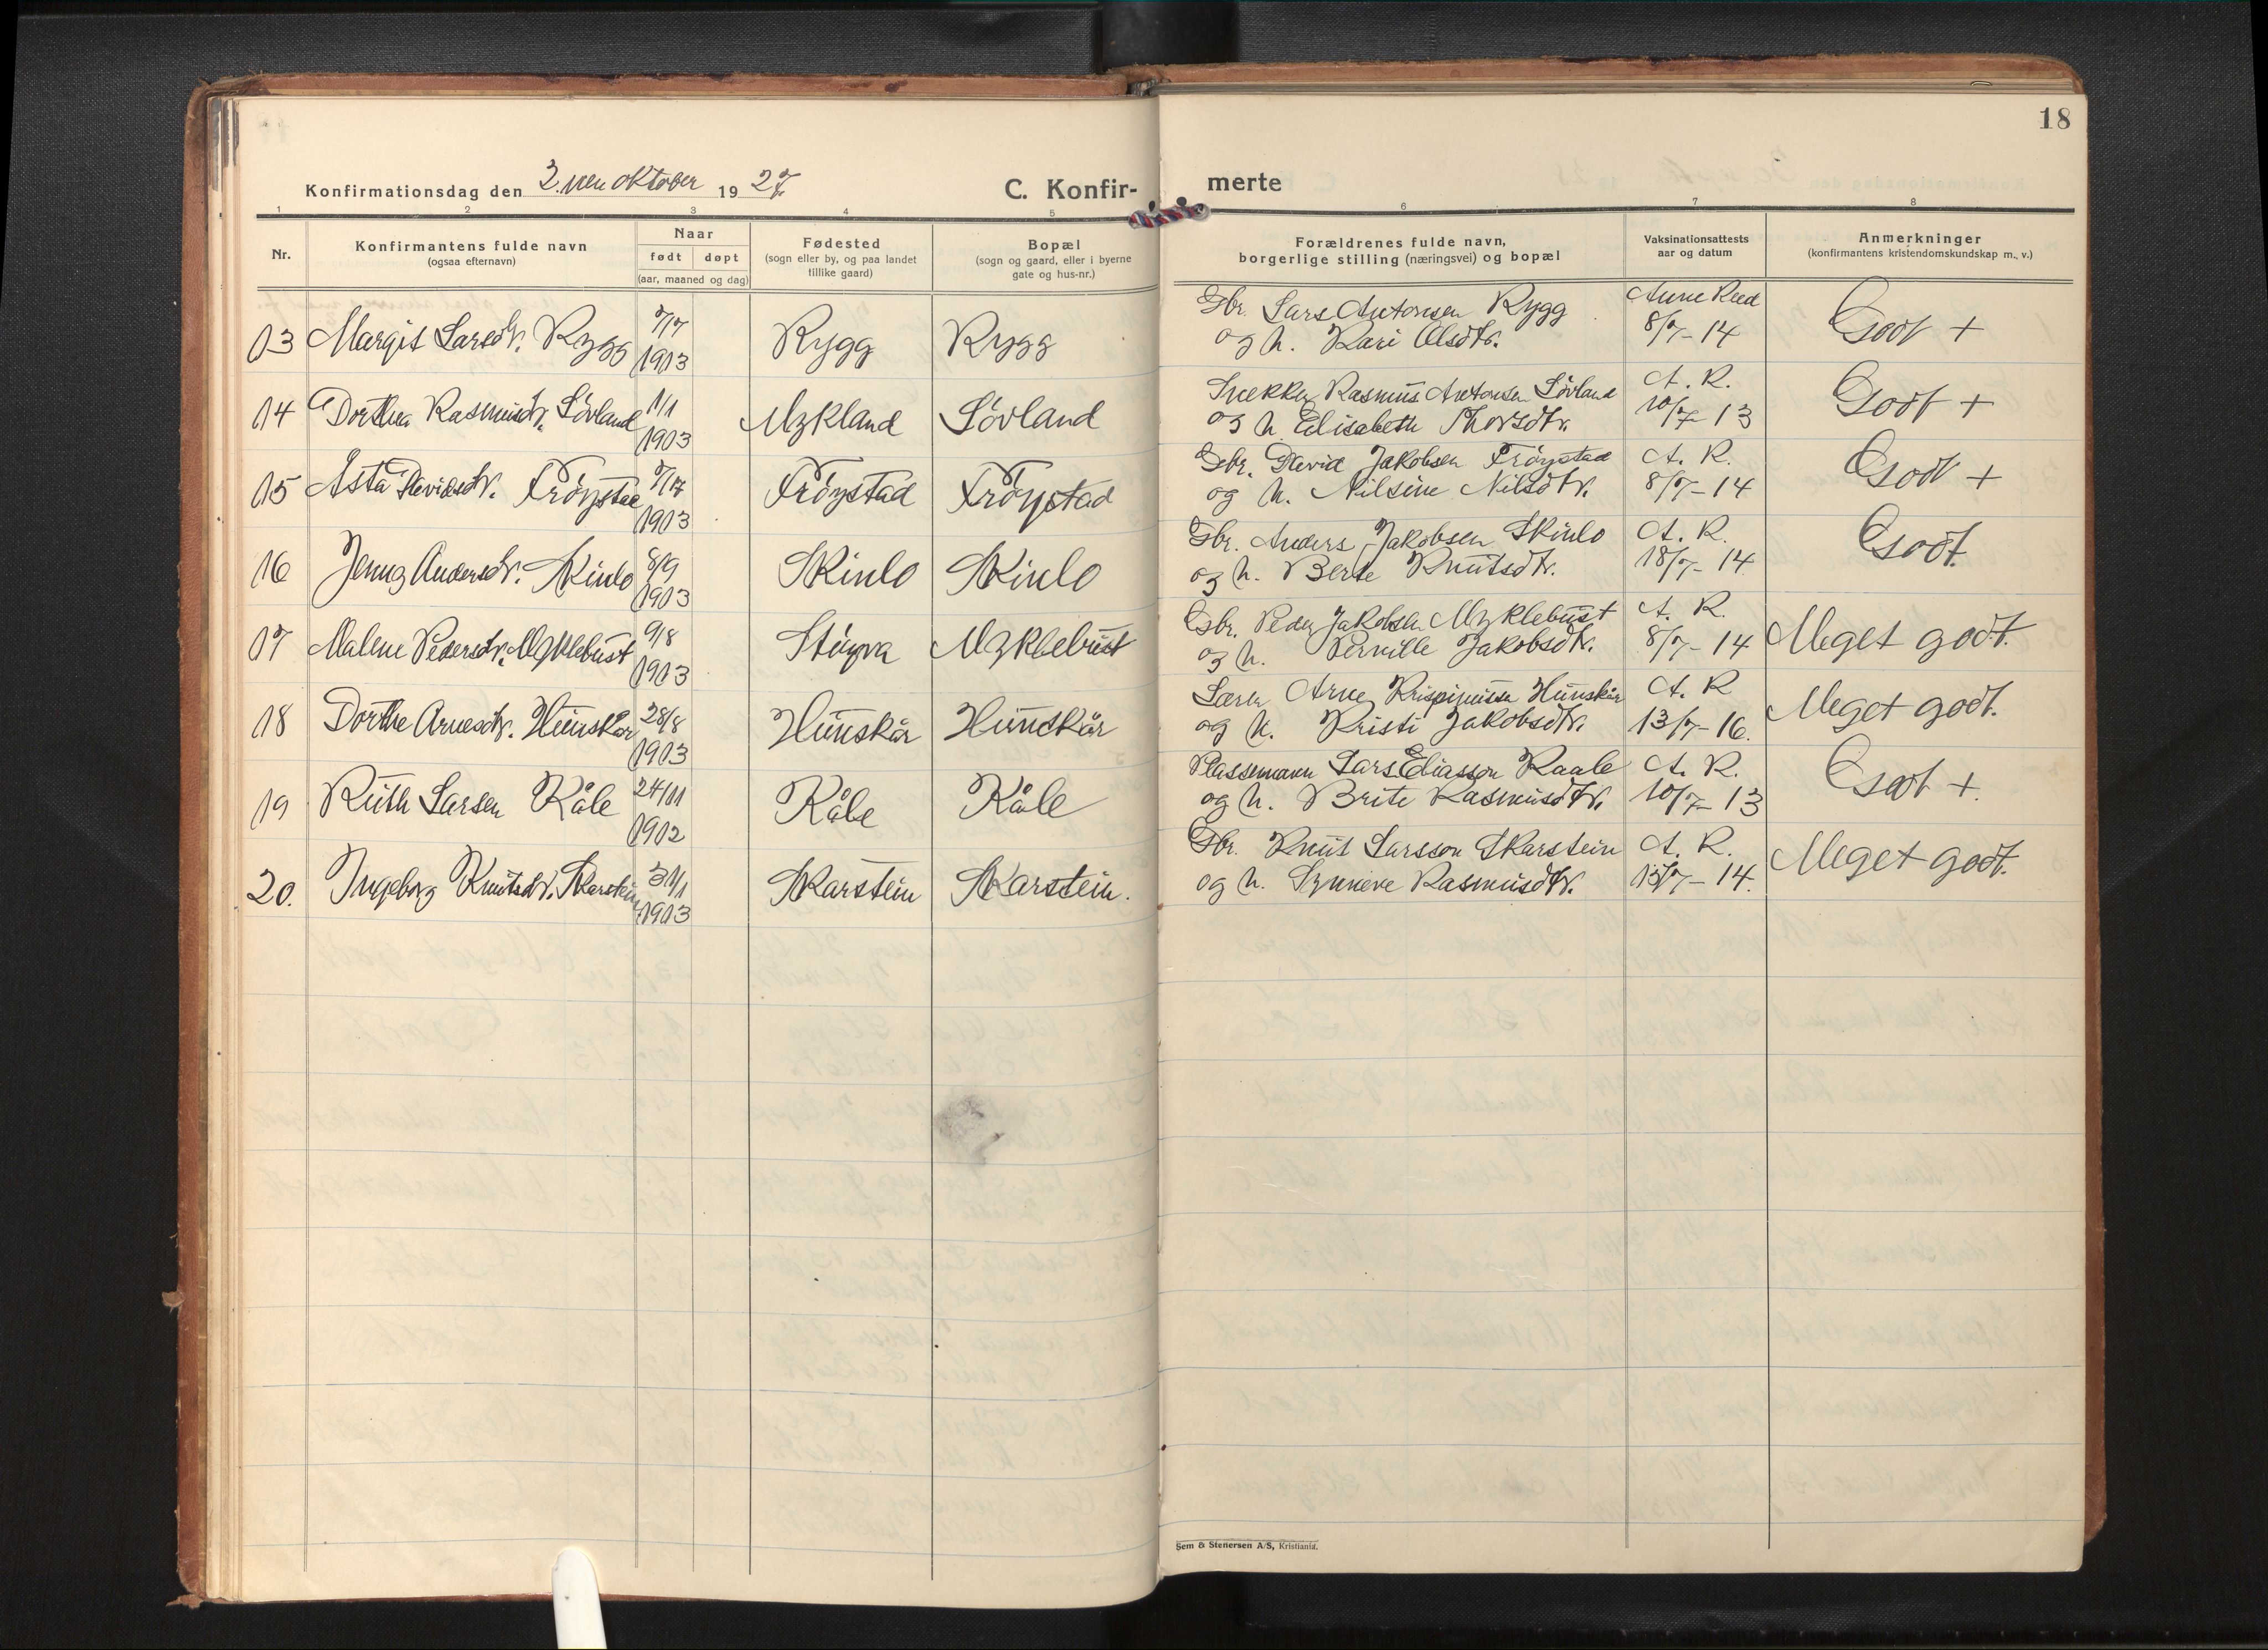 18
Konfirmationsdag den 2.nen oktober 1927
C. Konfirmerte
1 2 3 4 5 6 7 8
Nr.
Konfirmantens fulde navn
(ogsaa efternavn)
Naar
født døpt
(aar, maaned og dag)
Fødested
(sogn eller by, og paa landet
tillike gaard)
Bopæl
(sogn og gaard, eller i byerne
gate og hus-nr.)
Forældrenes fulde navn,
borgerlige stilling (næringsvei) og bopæl
Vaksinationsattests
aar og datum
Anmerkninger
(konfirmantens kristendomskundskap m. v.)
13 Margit Larsdtr. Rygg 7/7 1913 Rygg Rygg
Gbr. Lars Antonsen Rygg Anne Reed
og h. Kari Olsdtr. 8/7-14 Godt +
14 Dorthea Rasmusdtr. Lövland 1/1 1913 Mykland Lövland
Snekker Rasmus Antonsen Lövland A. R.
og h. Elisabeth Thorsdtr. 10/7-13 Godt +
15 Asta Davidsdtr. Fröystad 1913 Fröystad Fröystad
Gbr. David Jakobsen Fröystad A. R.
og h. Nilsine Nilsdtr. 8/7-14 Godt +
16 Jenny Andersdtr. Skinlo 8/9 1913 Skinlo Skinlo
Gbr. Anders Jakobsen Skinlo A. R.
og h. Berte Knutsdtr. 18/7-14 Godt.
17 Malene Pedersdtr. Myklebust 9/8 1913 Støyva Myklebust
Gbr. Peder Jakobsen Myklebust A. R.
og h. Pernille Jakobsdtr. 8/7-14 Meget godt.
18 Dorthe Arnesdtr. Hunskår 28/8 1913 Hunskår Hundskår
Lærer Arne Krispinussen Hunskår A. R
og h. Kristi Jakobsdtr. 13/7-16. Meget godt.
19 Ruth Larsen Råle 24/11 1912 Råle Råle
Plassemann Lars Eliasson Raale A. R.
og h. Brite Rasmusdtr. 10/7-13 Godt +.
20. Ingeborg Knutsdtr. Skarstein 31/1 1913 Skarstein Skarstein.
Gbr. Knut Larsson Skarstein A. R.
og h. Synneve Rasmusdtr. 13/7-14. Meget godt.
Sem & Stenersen A/S, Kristiania.